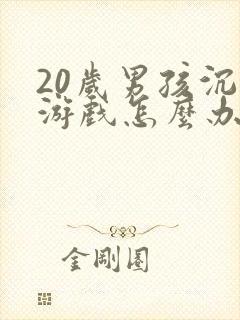 20歲男孩沉
游戲怎麼办
金剛圈